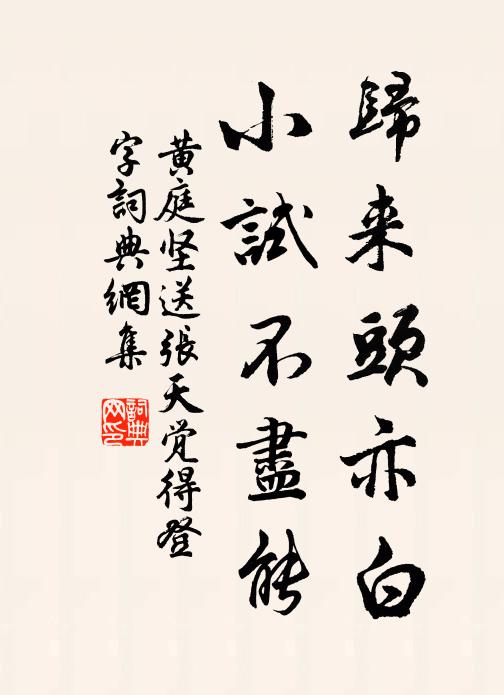 歸来頭亦白
小試不盡能
黄庭坚送張天觉得登
字詞典網集
詞典网印